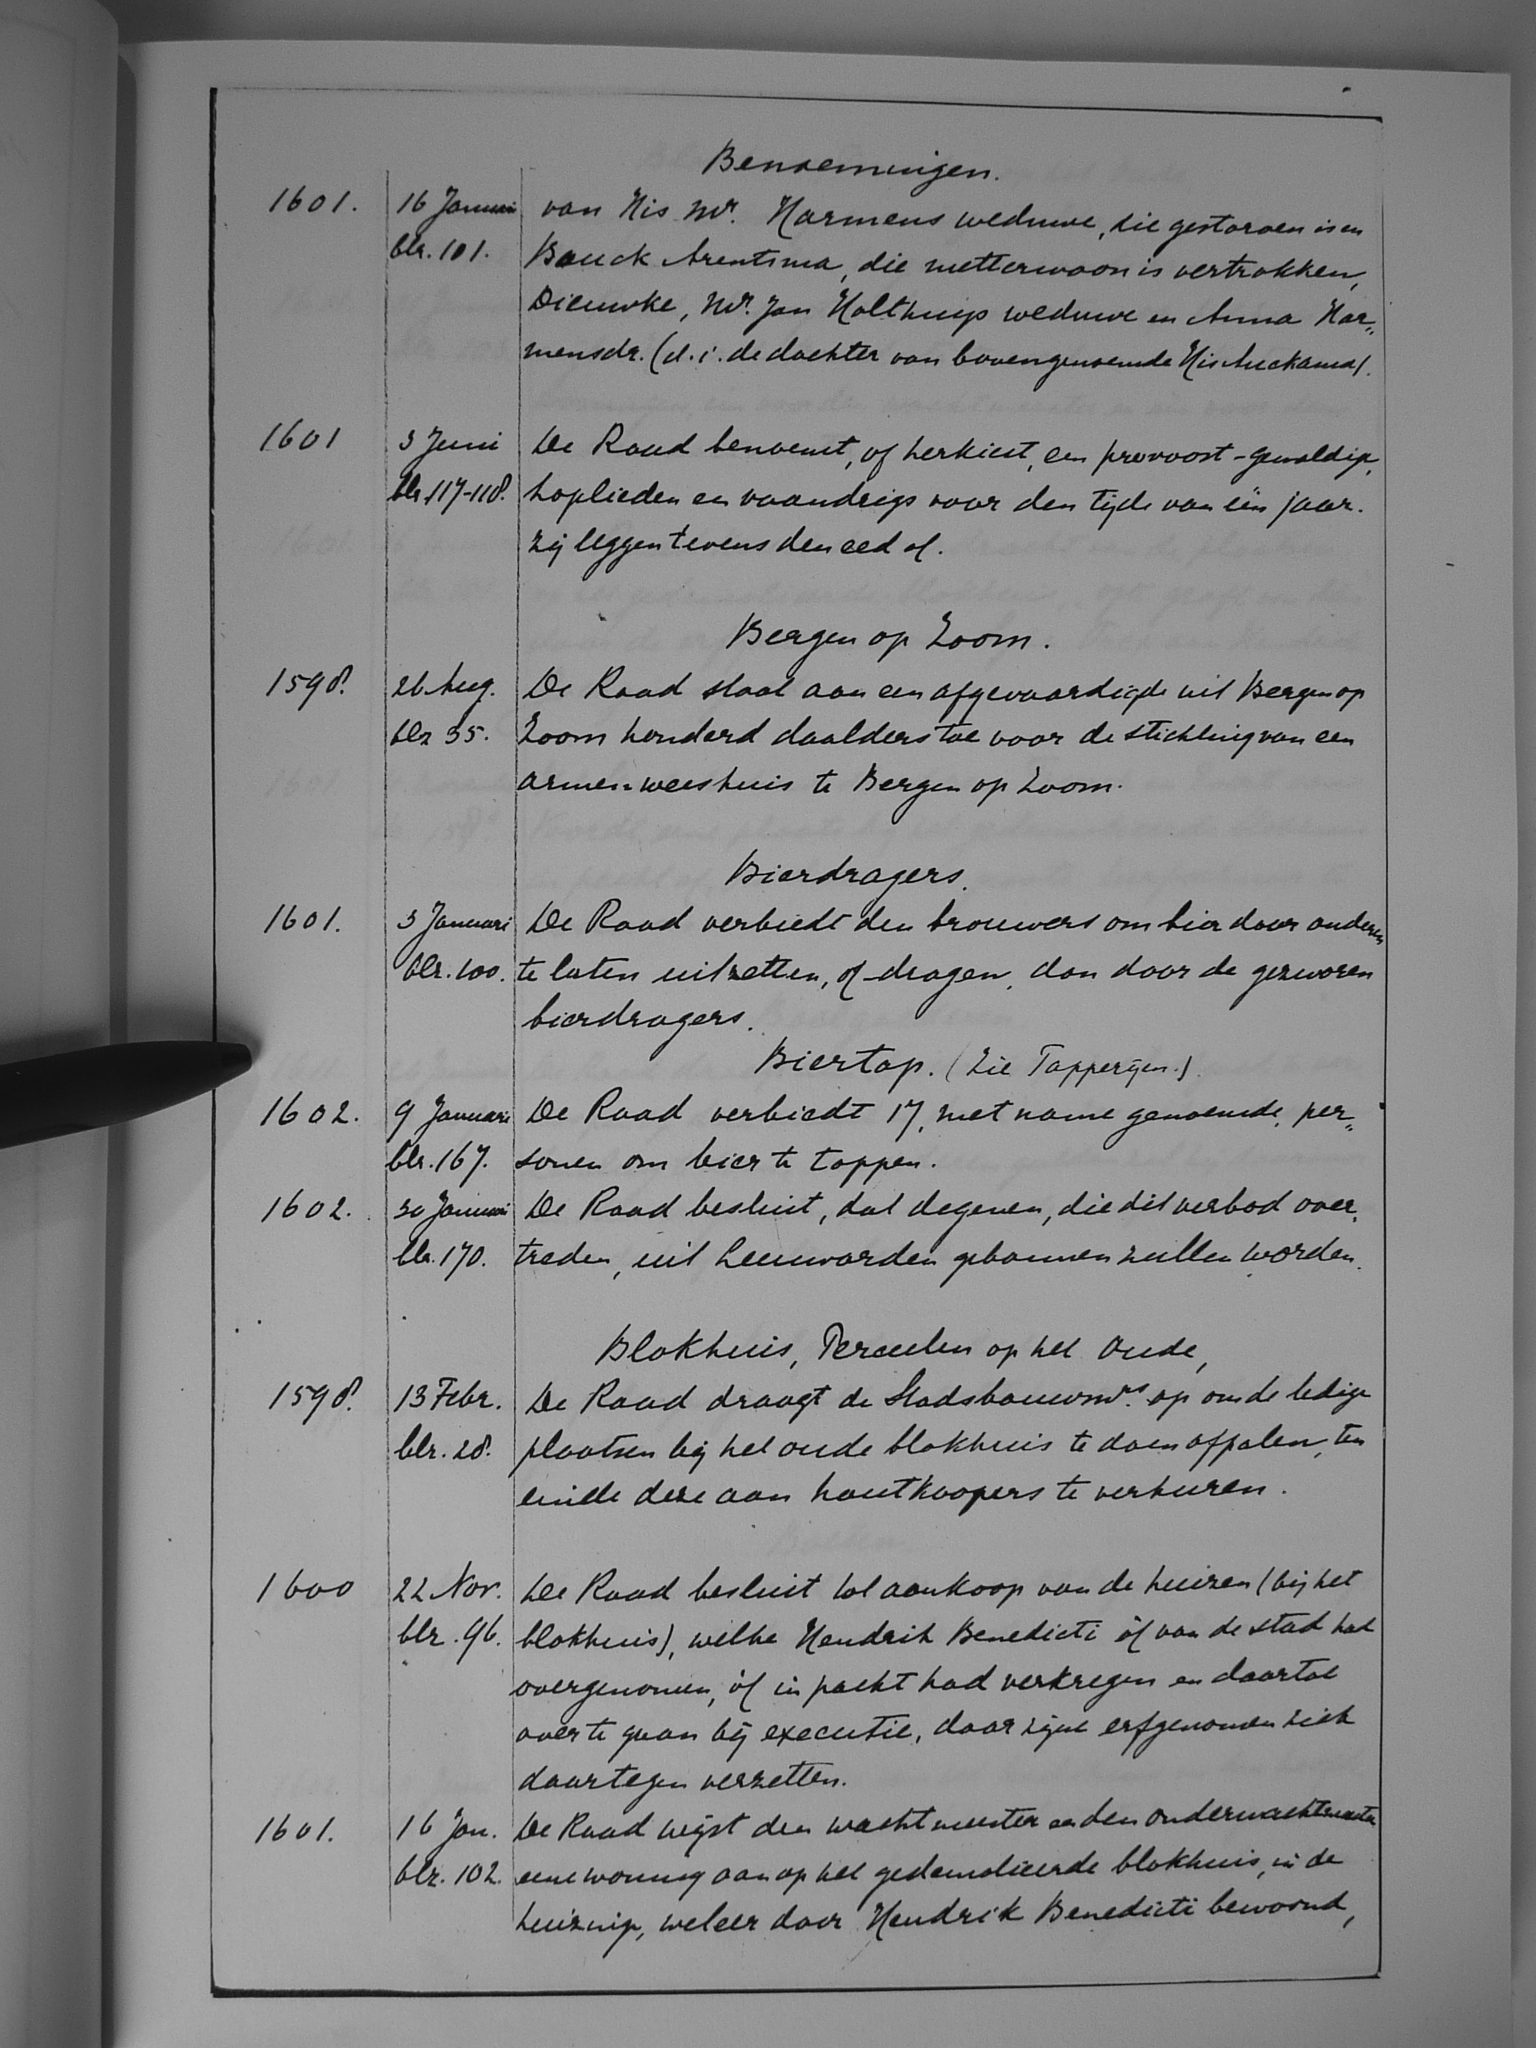 Benoemingen.
1601. 16 Januari van His Mr. Harmens weduwe, die gestorven is en
blz. 101. Bauck Arentsma, die metterwoon is vertrokken,
Dieuwke, Mr. Jan Holthuijs weduwe en Anna Har„
mensdr. (d.i. de dochter van bovengenoemde His Auckama).
1601 3 Juni De Raad benoemt, of herkiest, een provoost-geweldige,
blz. 117-118. hoplieden en vaandrigs voor den tijd van één jaar.
Zij leggen tevens den eed af.
Bergen op Zoom.
1598. 26 Aug. De Raad staat aan een afgevaardigde uit Bergen op
blz 35. Zoom honderd daalders toe voor de stichting van een
armen-weeshuis te Bergen op Zoom.
Bierdragers.
1601. 3 Januari De Raad verbiedt den brouwers om bier door anderen
blz. 100. te laten uitzetten, of dragen, dan door de gezworen
bierdragers.
Biertap. (Zie Tapperijen.)
1602. 9 Januari De Raad verbiedt 17, met name genoemde, per„
blz. 167. sonen om bier te tappen.
1602. 30 Januari De Raad besluit, dat degenen, die dit verbod over,
blz. 170. treden, uit Leeuwarden gebannen zullen worden.
Blokhuis, Perceelen op het Oude,
1598. 13 Febr. De Raad draagt de Stadsbouwmrs. op om de ledige
blz. 28. plaatsen bij het oude blokhuis te doen afpalen, ten
einde deze aan houtkoopers te verhuren.
1600 22 Nov. De Raad besluit tot aankoop van de huizen (bij het
blz. 96. blokhuis), welke Hendrik Benedicti òf van de stad had
overgenomen, òf in pacht had verkregen en daartoe
over te gaan bij executie, daar zijne erfgenomen zich
daartegen verzetten.
1601. 16 Jan. De Raad wijst den wachtmeester en den onderwachtmeester
blz. 102. eene woning aan op het gedemolieerde blokhuis, in de
huizinge, weleer door Hendrik Benedicti bewoond,